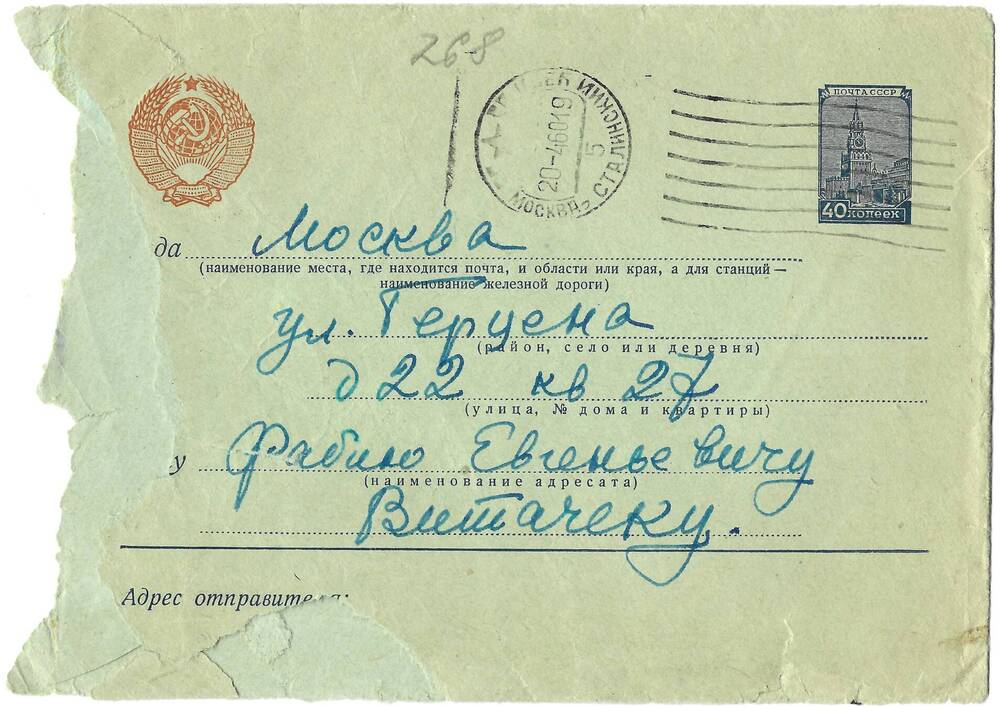 268
20-4.6019
МОСКВА
СТАЛИНСКИЙ
5
ПОЧТА СССР
40 КОПЕЕК
да Москва
(наименование места, где находится почта, и области или края, а для станций —
наименование железной дороги)
ул. Герцена
(район, село или деревня)
д 22 кв 27
(улица, № дома и квартиры)
у Фабию Евгеньевичу
(наименование адресата)
Витачеку.
Адрес отправителя: